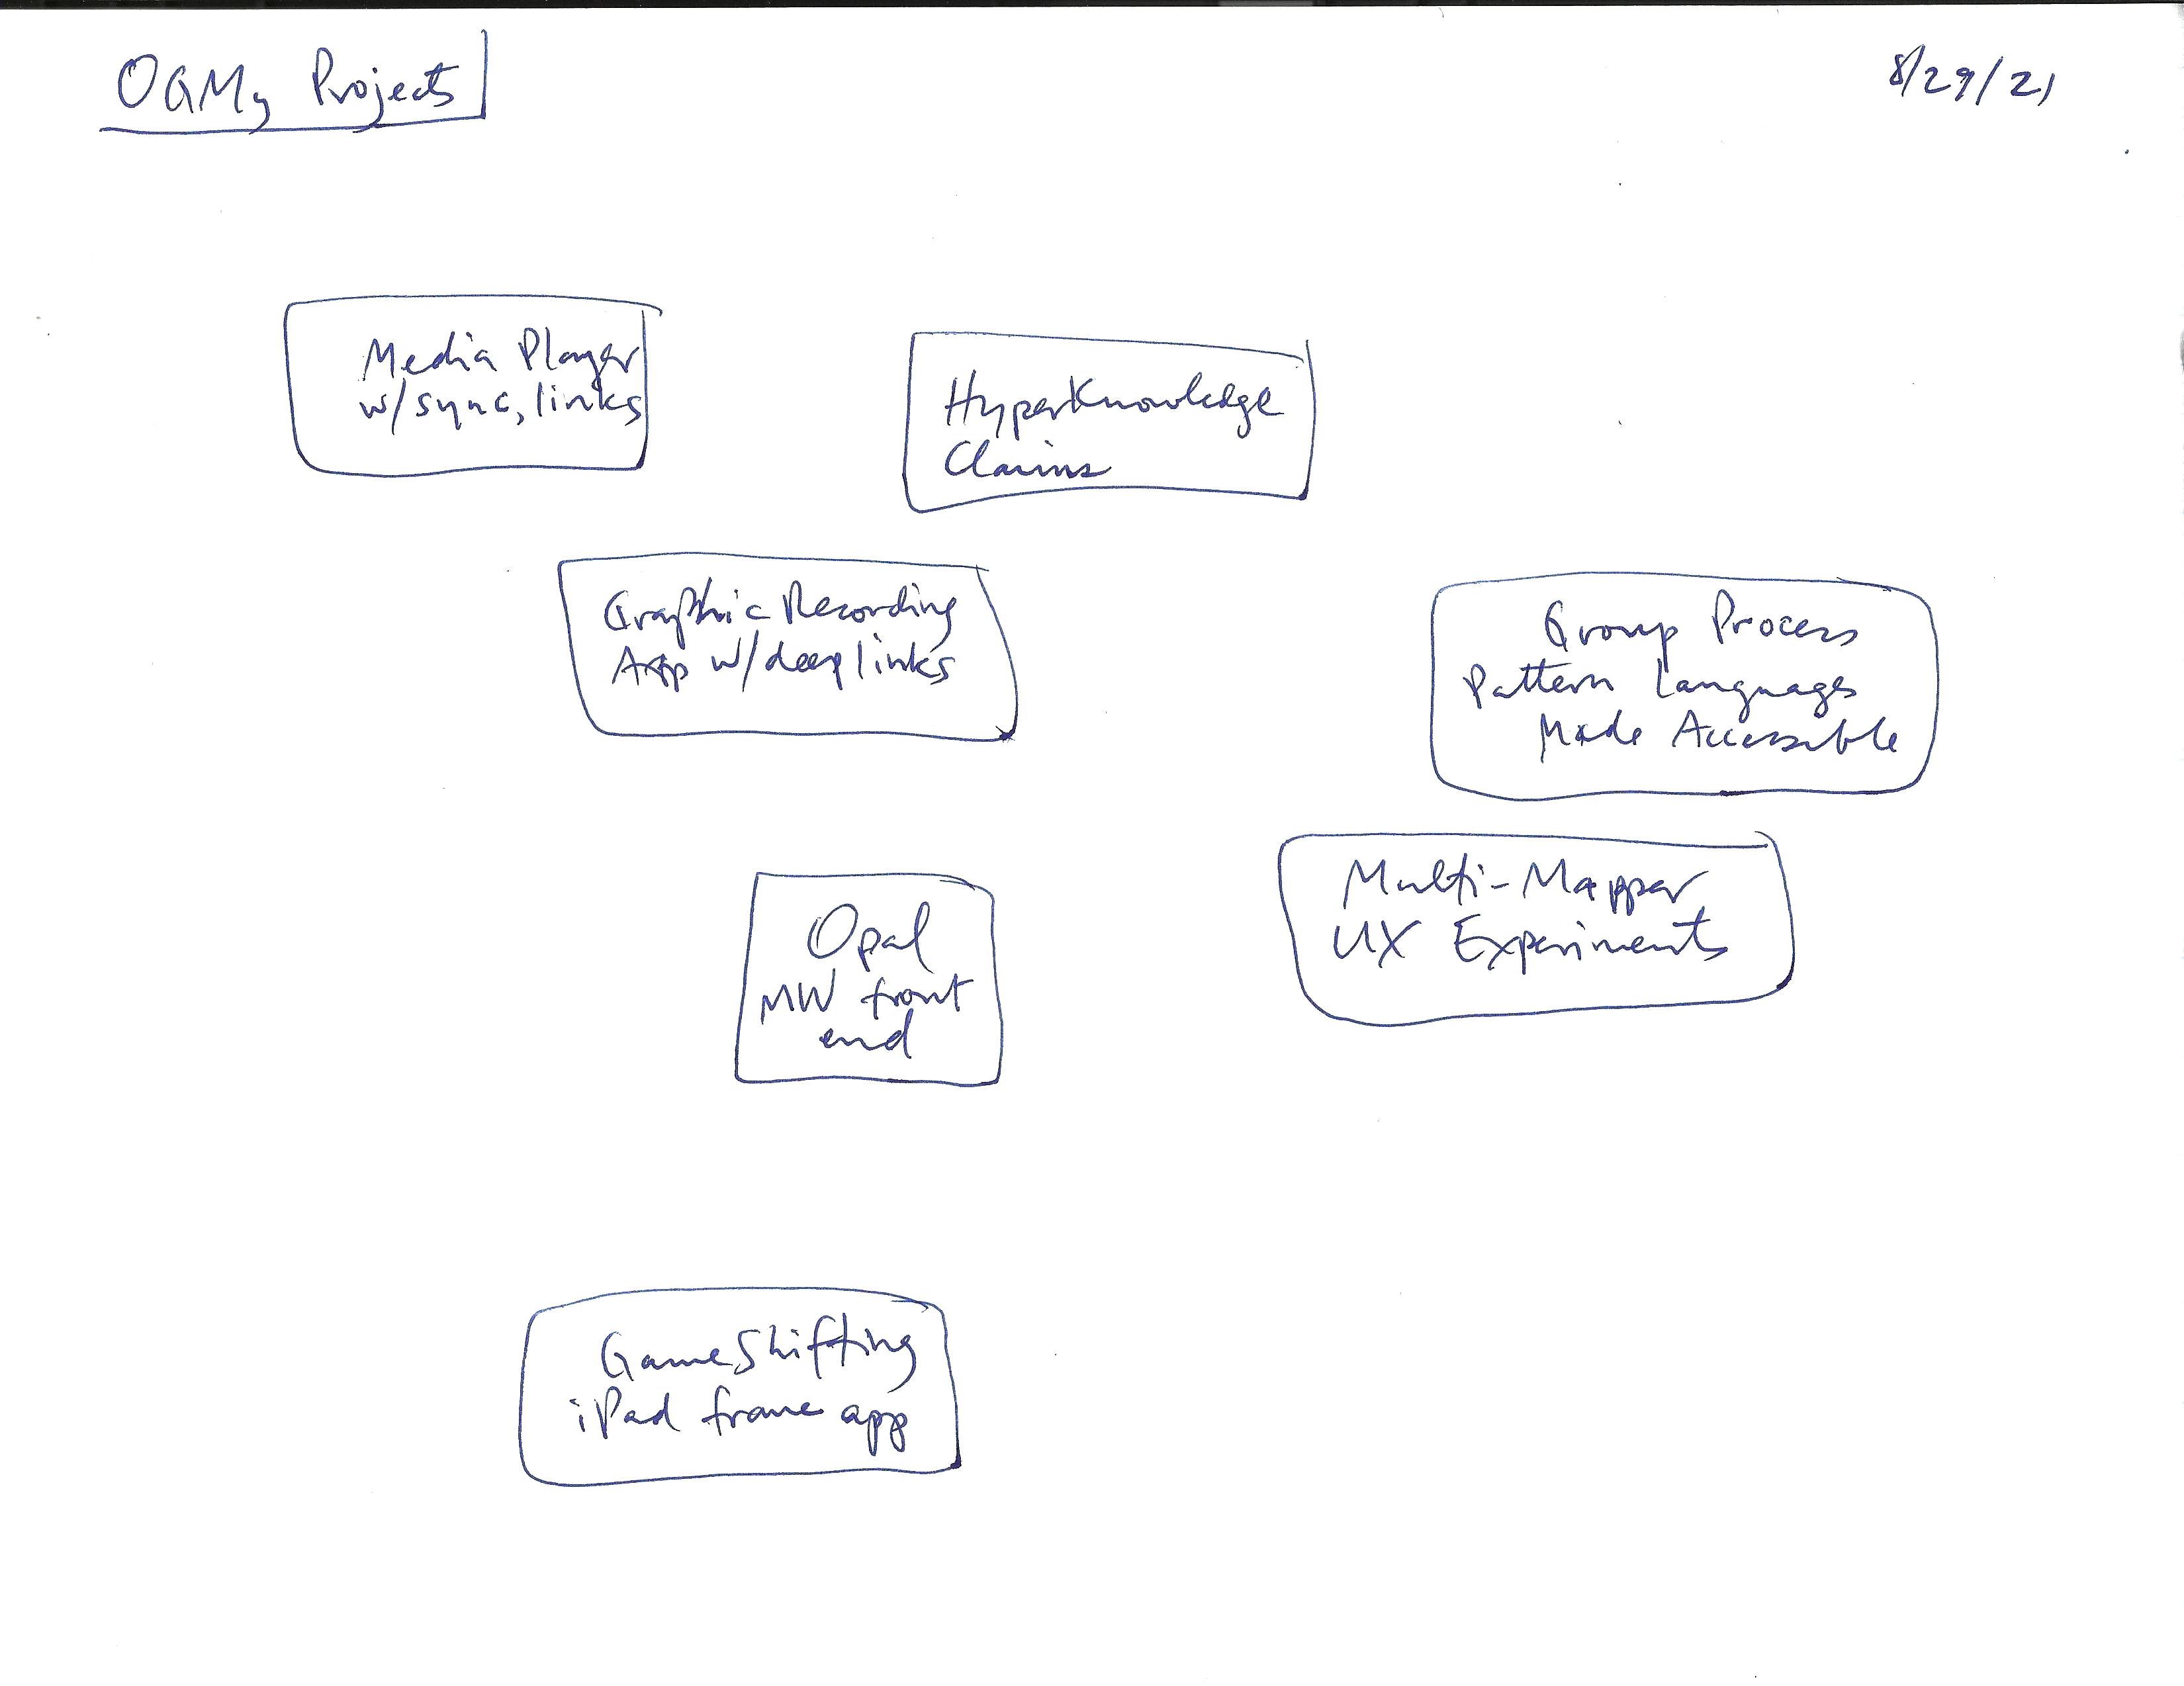 OGMy Projects
8/29/21
Media Player
w/sync, links
HyperKnowledge
Claims
Graphic Recording
App w/deep links
Group Process
Pattern Languages
Made Accessible
Multi-Mapper
UX Experiments
Opal
MW front
end
GameShifting
iPad frame app